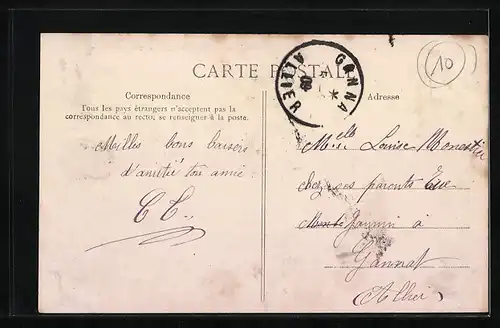 CARTE POSTALE
Correspondance
Tous les pays étrangers n'acceptent pas la
correspondance au recto, se renseigner à la poste.
Milles bons baisers
d'amitié ton amie
Adresse
GANNAT
ALLIER
10
Melle Louise Monestier
chez ses parents Rue
à
Gannat
(Allier)